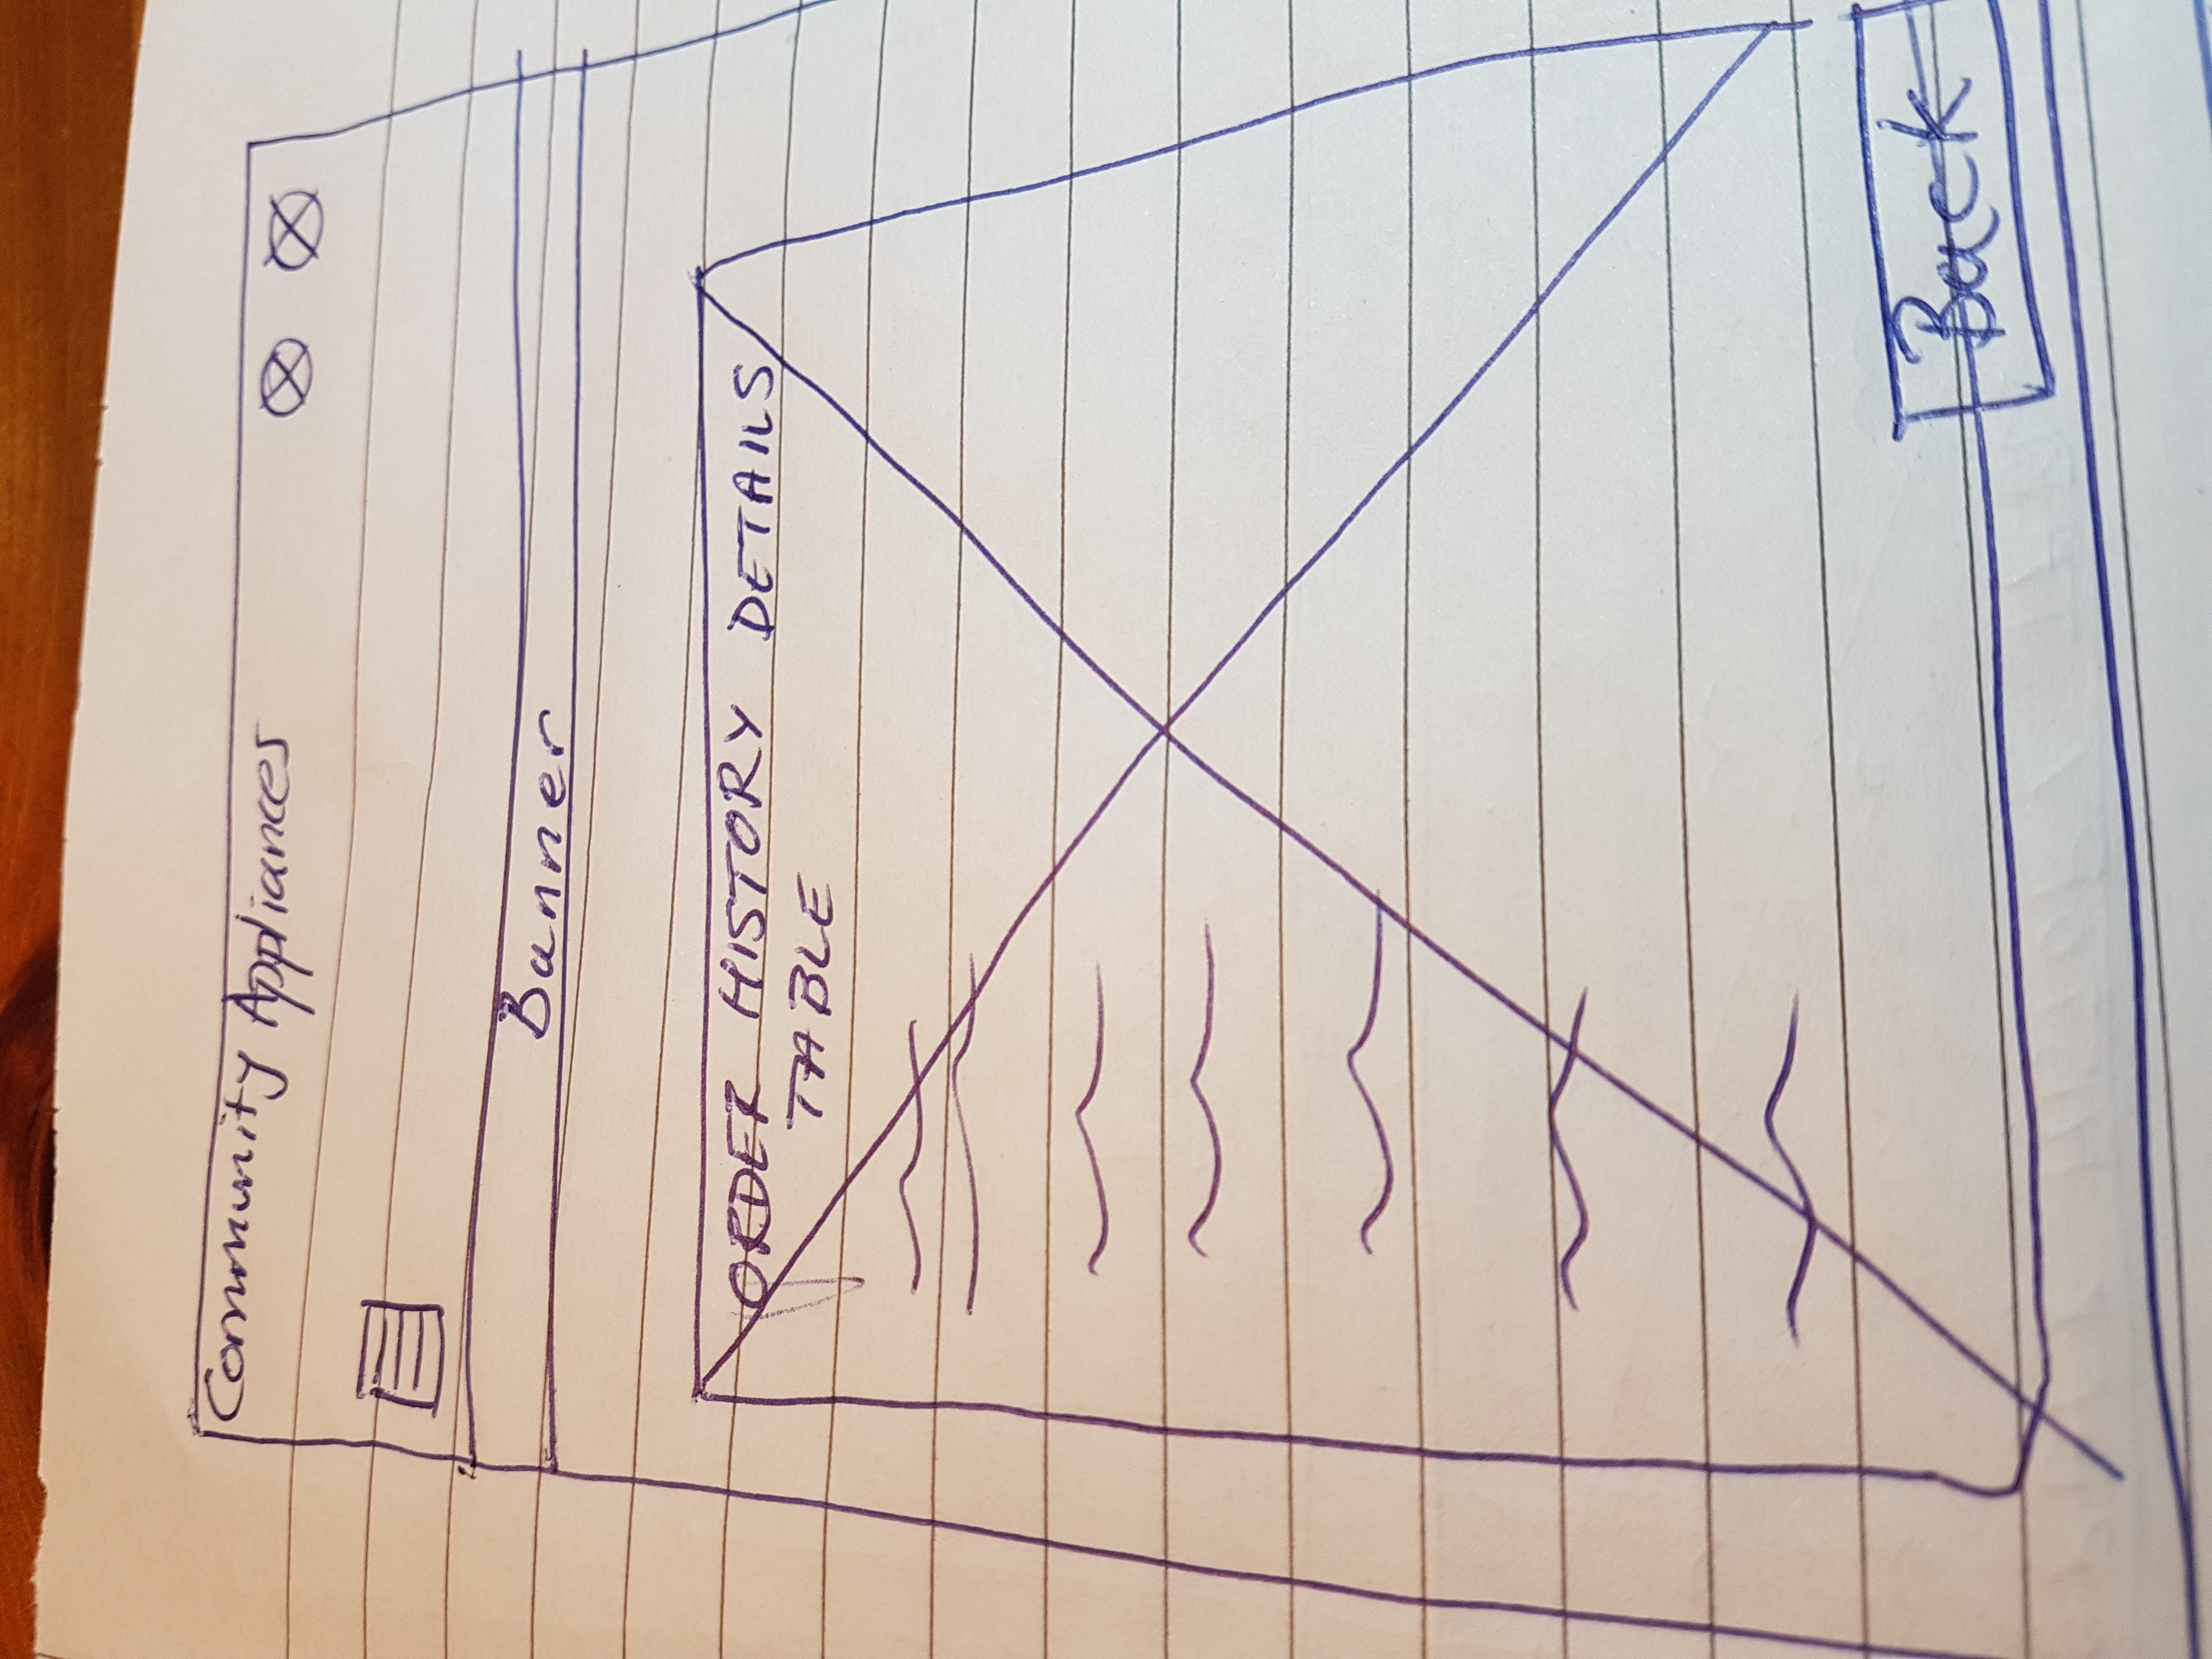 Community Appliances
Banner
ORDER HISTORY DETAILS
TABLE
Back